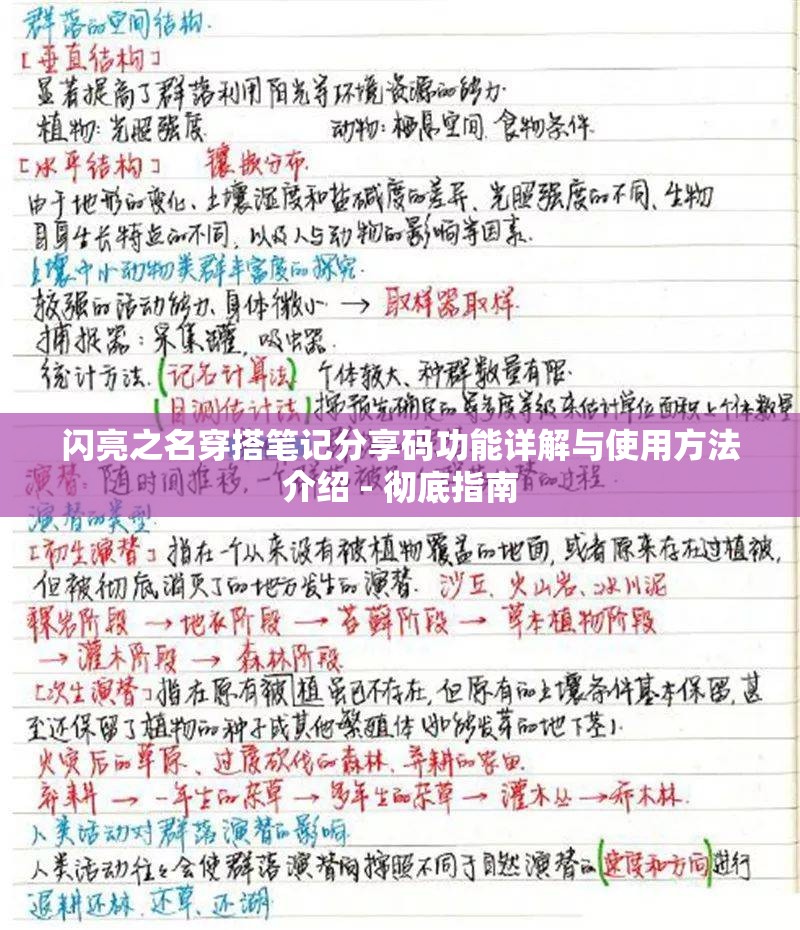 群落的空间结构.
[垂直结构]
显著提高了群落利用阳光等环境资源的能力.
植物:光照强度. 动物:栖息空间、食物条件.
[水平结构] 镶嵌分布.
由于地形的变化、土壤湿度和盐碱度的差异、光照强度的不同、生物
自身生长特点的不同,以及人与动物的影响等因素.
土壤中小动物类群丰富度的探究.
较强的活动能力、身体微小 → 取样器取样.
捕捉器:采集罐,吸虫器.
统计方法.(记名计算法) 个体较大、种群数量有限.
(目测估计法)按预先确定的多度等级来估计单位面积上个体数量
闪亮之名穿搭笔记分享码功能详解与使用方法
介绍 - 彻底指南
演替:随时间推移,一个群落被 的过程.
演替的类型.
[初生演替]指在一个从来没有被植物覆盖的地面,或者原来存在过植被,
但被彻底消灭了的地方发生的演替. 沙丘、火山岩、冰川泥
裸岩阶段 → 地衣阶段 → 苔藓阶段 → 草本植物阶段
→ 灌木阶段 → 森林阶段
[次生演替]指在原有被植虽已不存在,但原有的土壤条件基本保留,甚
至还保留了植物的种子或其他繁殖体(如能发芽的地下茎).
火灾后的草原、过度砍伐的森林、弃耕的农田.
弃耕 → 一年生的杂草 → 多年生的杂草 → 灌木丛 → 乔木林.
人类活动对群落演替的影响.
人类活动往々会使群落演替 按照不同于自然演替的(速度和方向)进行
退耕还林、还草、还湖